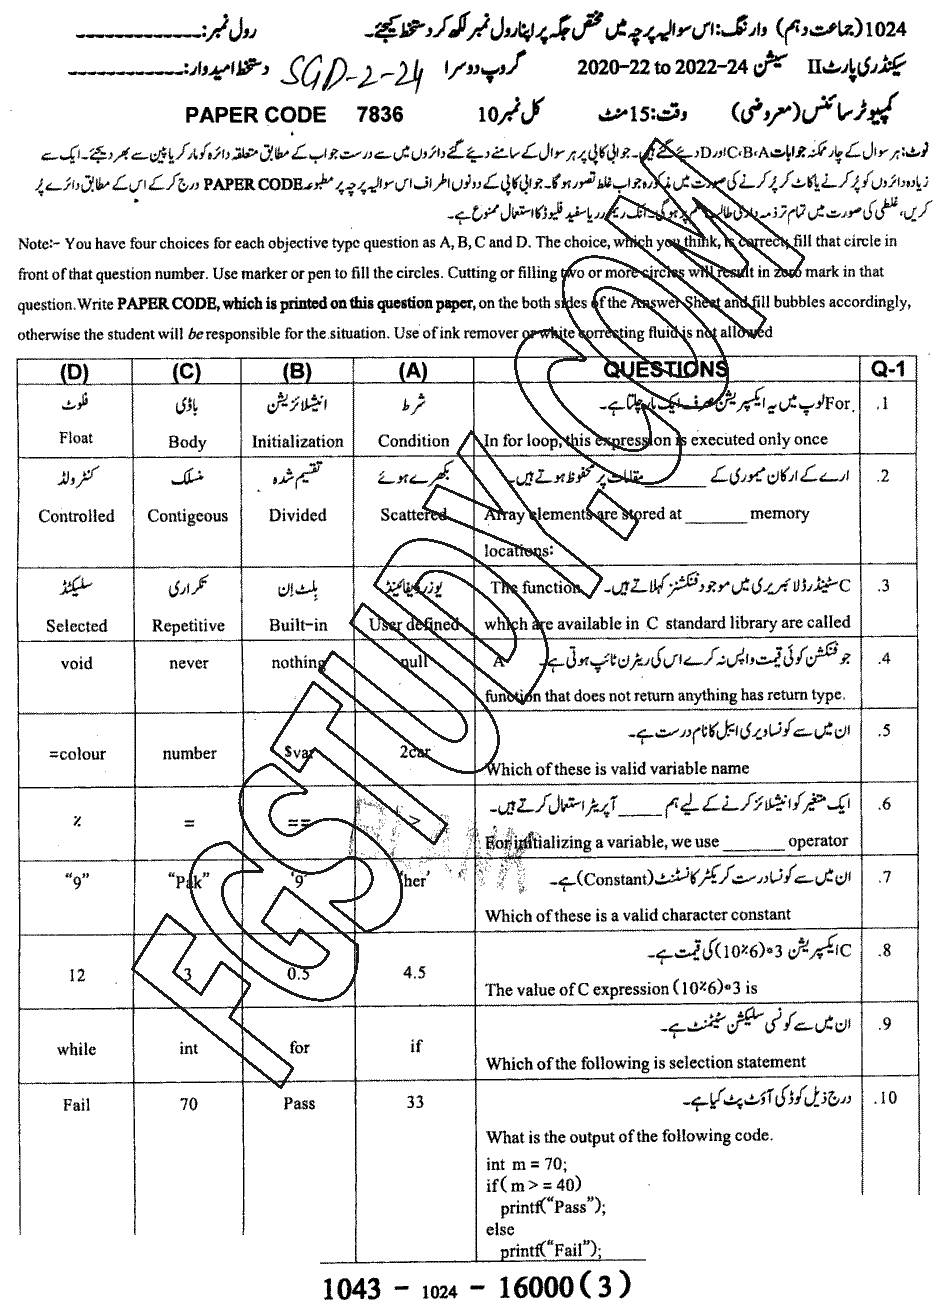 1024 (جماعت دہم) وارننگ: اس سوالیہ پرچہ میں مختص جگہ پر اپنا رول نمبر لکھ کر دستخط کیجئے۔ رول نمبر:
سیکنڈری پارٹ II سیشن 2020-22 to 2022-24 گروپ دوسرا SGD-2-24 دستخط امیدوار:
کمپیوٹر سائنس (معروضی) وقت: 15 منٹ کل نمبر 10 PAPER CODE 7836
نوٹ: ہر سوال کے چار ممکنہ جوابات A،B،C اور D دیئے گئے ہیں۔ جوابی کاپی پر ہر سوال کے سامنے دیئے گئے دائروں میں سے درست جواب کے مطابق متعلقہ دائرہ کو مارکر یا پین سے بھر دیجئے۔ ایک سے
زیادہ دائروں کو پُر کرنے یا کاٹ کر پُر کرنے کی صورت میں مذکورہ جواب غلط تصور ہوگا۔ جوابی کاپی کے دونوں اطراف اس سوالیہ پرچہ پر مطبوعہ PAPER CODE درج کر کے اس کے مطابق دائرے پُر
کریں، غلطی کی صورت میں تمام تر ذمہ داری طالب علم پر ہوگی۔ انک ریموور یا سفید فلیوڈ کا استعمال ممنوع ہے۔
Note:- You have four choices for each objective type question as A, B, C and D. The choice, which you think, is correct, fill that circle in
front of that question number. Use marker or pen to fill the circles. Cutting or filling two or more circles will result in zero mark in that
question. Write PAPER CODE, which is printed on this question paper, on the both sides of the Answer Sheet and fill bubbles accordingly,
otherwise the student will be responsible for the situation. Use of ink remover or white correcting fluid is not allowed
(D) (C) (B) (A) QUESTIONS Q-1
فلوٹ باڈی انیشلائزیشن شرط For لوپ میں یہ ایکسپریشن صرف ایک بار چلتا ہے۔ .1
Float Body Initialization Condition In for loop, this expression is executed only once
کنٹرولڈ منسلک تقسیم شدہ بکھرے ہوئے ارے کے ارکان میموری کے ______ مقامات پر محفوظ ہوتے ہیں۔ .2
Controlled Contigeous Divided Scattered Array elements are stored at ______ memory
locations:
سلیکٹڈ تکراری بلٹ اِن یوزر ڈیفائینڈ C سٹینڈرڈ لائبریری میں موجود فنکشنز کہلاتے ہیں۔ The function .3
Selected Repetitive Built-in User defined which are available in C standard library are called
void never nothing null جو فنکشن کوئی قیمت واپس نہ کرے اس کی ریٹرن ٹائپ ہوتی ہے۔ A .4
function that does not return anything has return type.
ان میں سے کونسا ویری ایبل کا نام درست ہے۔ .5
=colour number $var 2car Which of these is valid variable name
ایک متغیر کو انیشلائز کرنے کے لیے ہم _____ آپریٹر استعمال کرتے ہیں۔ .6
% = == > For initializing a variable, we use ______ operator
"9" "Pak" '9' 'her' ان میں سے کونسا درست کریکٹر کانسٹنٹ (Constant) ہے۔ .7
Which of these is a valid character constant
C ایکسپریشن 3*(10%6) کی قیمت ہے۔ .8
12 3 0.5 4.5 The value of C expression (10%6)*3 is
ان میں سے کونسی سلیکشن سٹیٹمنٹ ہے۔ .9
while int for if Which of the following is selection statement
Fail 70 Pass 33 درج ذیل کوڈ کی آؤٹ پٹ کیا ہے۔ .10
What is the output of the following code.
int m = 70;
if( m > = 40)
printf("Pass");
else
printf("Fail");
1043 - 1024 - 16000 (3)
FGSTUDY.COM